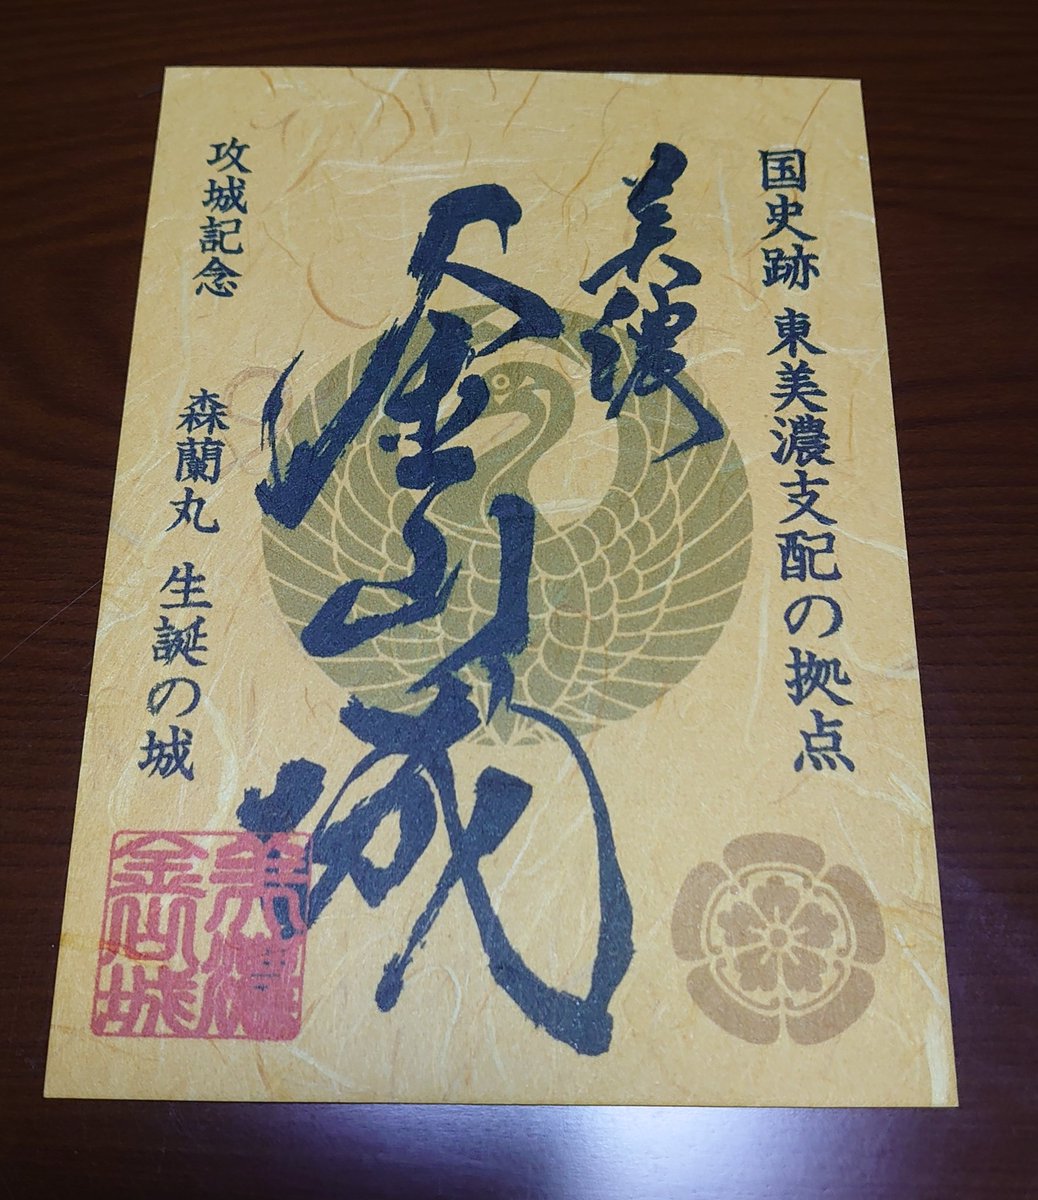 国史跡 東美濃支配の拠点
美濃
金山城
攻城記念
森蘭丸 生誕の城
美濃
金山城